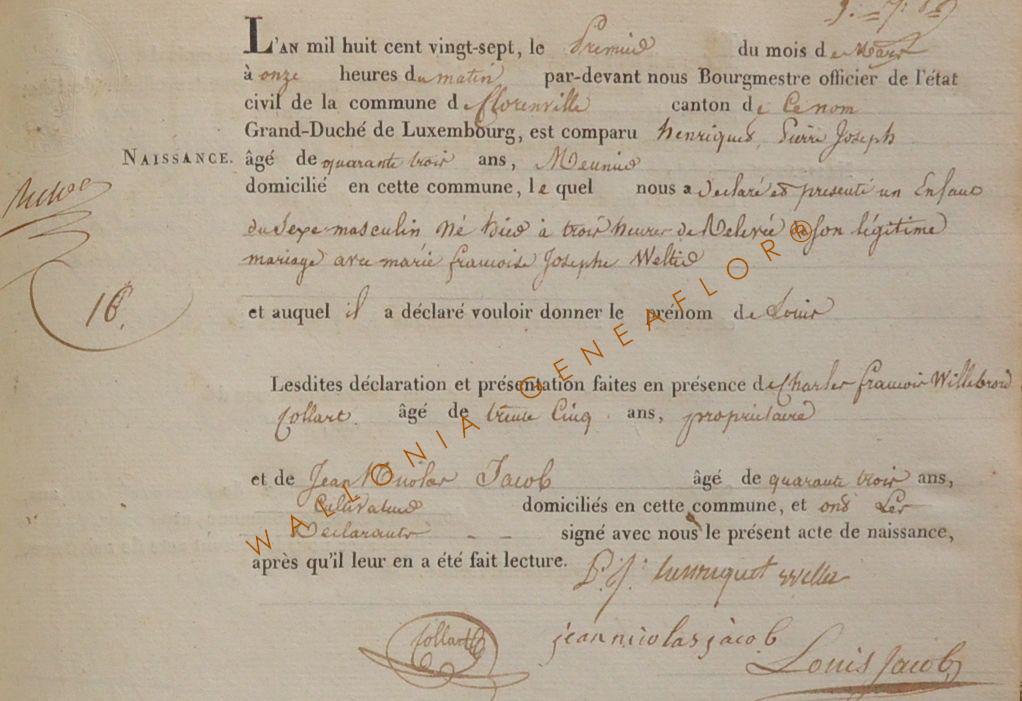 L'AN mil huit cent vingt-sept, le Premier du mois de Mars
à onze heures du matin par-devant nous Bourgmestre officier de l'état
civil de la commune de florenville canton de
Grand-Duché de Luxembourg, est comparu henriquet, Pierre Joseph
NAISSANCE. âgé de quarante trois ans, Meunier
domicilié en cette commune, le quel nous a Déclaré et presenté un Enfant
du Sexe masculin Né hier à trois heures de Relevée de son légitime
mariage avec marie francoise Josephe Welter
16.
et auquel il a déclaré vouloir donner le prénom de Louis
Lesdites déclaration et présentation faites en présence de Charles francois Willebrord
Collart. âgé de trente Cinq ans, propriétaire
et de Jean Nicolas Jacob âgé de quarante trois ans,
Cultivateur domiciliés en cette commune, et ont Les
Déclarants - - signé avec nous le présent acte de naissance,
après qu'il leur en a été fait lecture. P. J. henriquet Weller
Collart jean nicolas jàcob
Louis Jacob
WALLONIA GENEAFLOR®